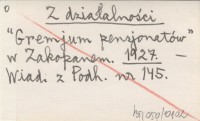 Z działalności
"Gremjum pensjonatów"
w Zakopanem. 1927. —
Wiad. z Podh. nr 145.